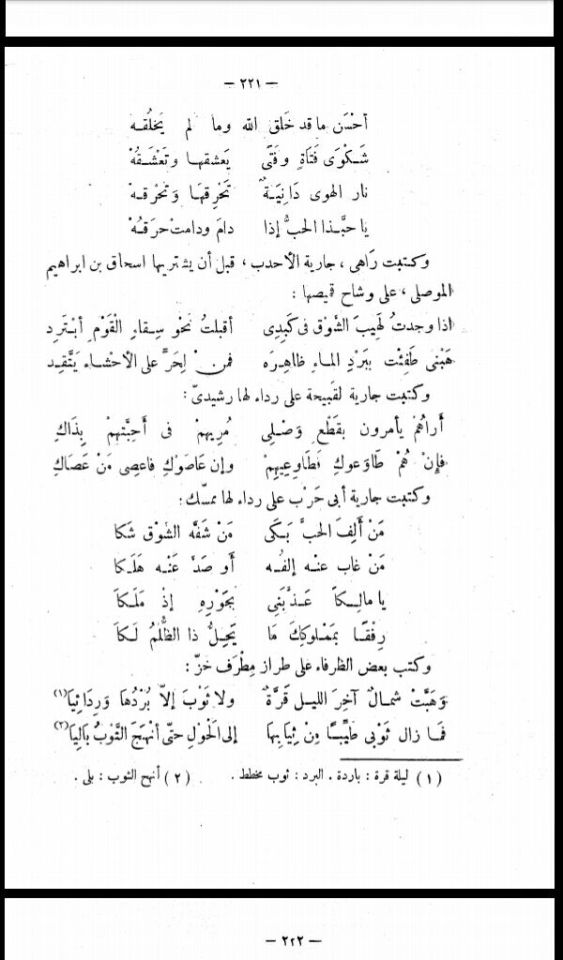 — ٢٢١ —
أحْسَن ما قد خَلق الله وما لم يَخلُقـه
شَـكْوَى فَتَاةٍ وفَتًى يَعشقهـا وتَعْشَـقُهْ
نار الهوى دَانِيَـةٌ تَحْرِقهَا وَتحْرقـه
يا حبَّـذا الحبُّ إذا دامَ ودامت حرَقـُهْ
وكتبت رَاهى ، جارية الأحدب ، قبل أن يشتريها اسحاق بن ابراهيم
الموصلى ، على وشاح قميصها :
اذا وجدتُ لهيبَ الشَّوْق فى كَبِدِى أقبلتُ نحوَ سِـقاءِ القَوْمِ أبْـترِد
هَبْنى طَفِئْت ببَرْدِ المـاءِ ظاهِـرَه فمن لِحَرٍّ على الأحشـاءِ يَتَّقِـد
وكتبت جارية لقبيحة على رداء لها رشيدىّ :
أراهُمْ يأمرون بقَطْعِ وَصْـلِى مُرِيهمْ فى أحِبَّتهمْ بِذَاكِ
فإنْ هُمْ طاوَعوكِ فَطاوِعِيهِمْ وإن عَاصَوْكِ فاعصِى مَنْ عَصَاكِ
وكتبت جارية أبى حَرْب على رداء لها ممسّك :
مَنْ أَلِفَ الحبَّ بَـكَى مَنْ شَفَّه الشوْق شَكا
مَنْ غاب عنـه إلفُـه أو صَدَّ عَنْـه هَلَـكا
يا مالِـكاً عَـذَّبَنِى بجَوْرِهِ إذْ مَلَـكَا
رِفْقـًا بمَمْـلوكِكَ مَا يَحِلُّ ذا الظُّلمُ لَـكَا
وكتب بعض الظرفاء على طراز مِطْرَف خَزّ :
وَهَبَّتْ شَمالٌ آخِرَ الليـل قَرَّةٌ ولا ثَوْبَ إلاّ بُرْدُهَا وَرِدَائِيَا (١)
فمَـا زال ثَوْبى طَيِّبـًا مِنْ ثِيَابِهَا إلى الحَوْلِ حتّى أنْهَجَ الثَّوْبُ بَالِيَا (٢)
(١) ليلة قرة : باردة . البرد : ثوب مخطط . (٢) أنهج الثوب : بلى .
— ٢٢٢ —